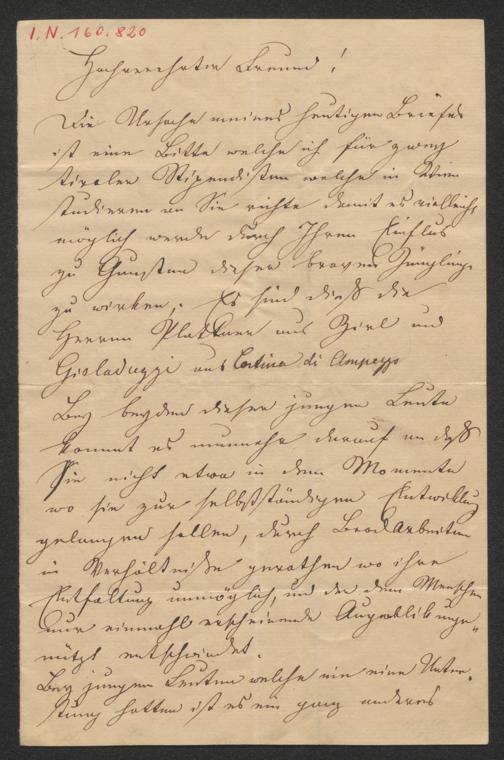 I.N. 160.820
Hochverehrter Freund!
Die Ursache meines heutigen Briefes
ist eine Bitte welche ich für zwey
tiroler Stipendisten welche in Wien
studieren an Sie richte damit es vielleicht
möglich werde durch Ihren Einfluß
zu Gunsten dieser braven Jünglinge
zu wirken. Es sind dieß die
Herren Plattner aus Zirl und
Ghedina aus Cortina di Ampezzo
Bey beyden dieser jungen Leute
kommt es nunmehr darauf an daß
Sie nicht etwa in dem Momente
wo sie zur selbstständigen Entwicklung
gelangen sollen, durch Brodarbeiten
in Verhältniße gerathen wo ihre
Entfaltung unmöglich, und der dem Menschen
nur einmahl erscheinende Augenblik unge„
nützt entschwindet.
Bey jungen Leuten welche nie eine Unter„
stützung hatten ist es ein ganz anderes